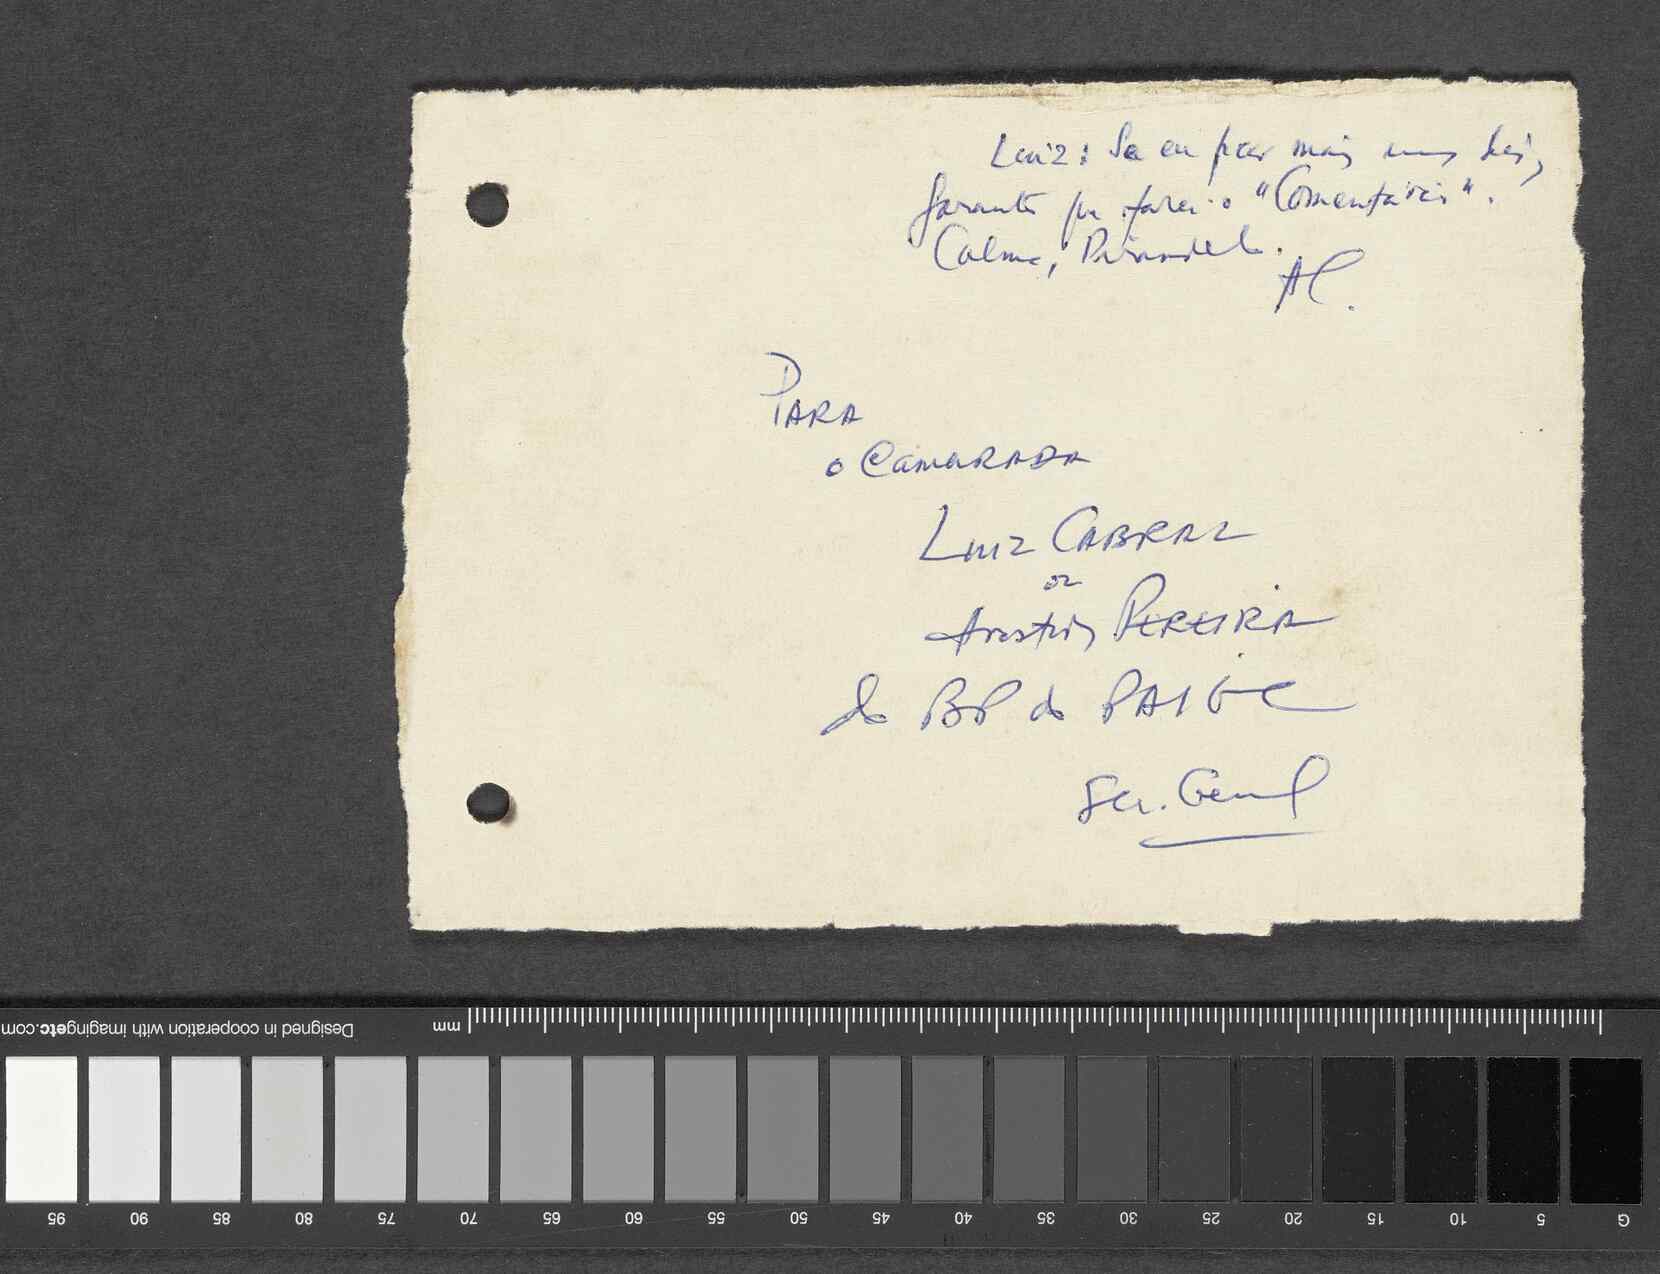 Luiz: Se eu ficar mais uns dias,
garanto que farei o "Comentário".
Calma, Pirandello.
AC.
PARA
o CAMARADA
Luiz CABRAL
ou
Aristides PEREIRA
do BP do PAIGC
Sec. Geral
Designed in cooperation with imagingetc.com
mm
95 90 85 80 75 70 65 60 55 50 45 40 35 30 25 20 15 10 5 G